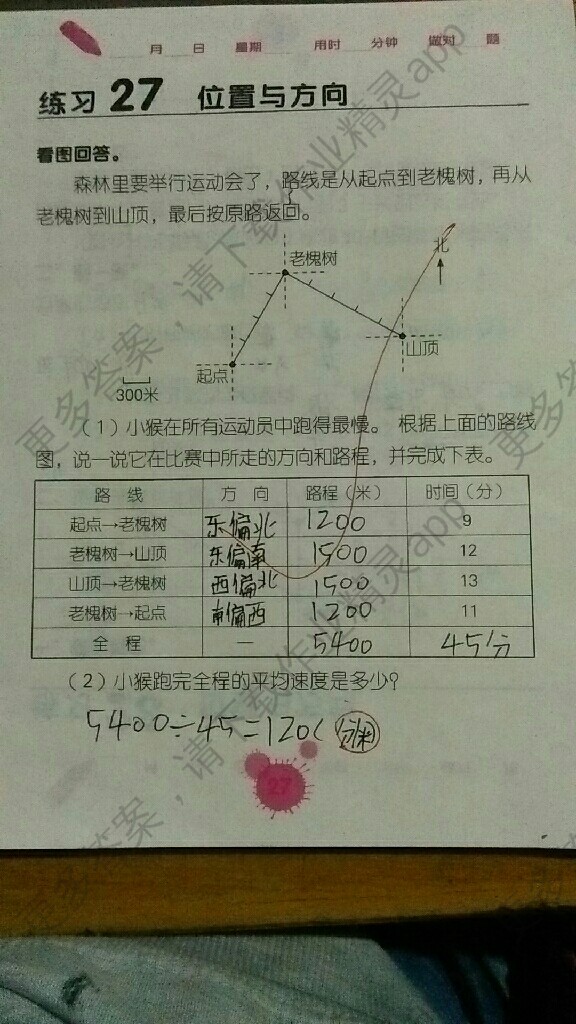 月 日 星期 用时 分钟 做对 题
练习27 位置与方向
看图回答。
森林里要举行运动会了，路线是从起点到老槐树，再从
老槐树到山顶，最后按原路返回。
北
老槐树
山顶
起点
300米
（1）小猴在所有运动员中跑得最慢。 根据上面的路线
图，说一说它在比赛中所走的方向和路程，并完成下表。
路 线 方 向 路程（米） 时间（分）
起点→老槐树 东偏北 1200 9
老槐树→山顶 东偏南 1500 12
山顶→老槐树 西偏北 1500 13
老槐树→起点 南偏西 1200 11
全 程 — 5400 45分
（2）小猴跑完全程的平均速度是多少？
5400÷45=120(
27
更多答案，请下载作业精灵app
更多答案，请下载作业精灵app